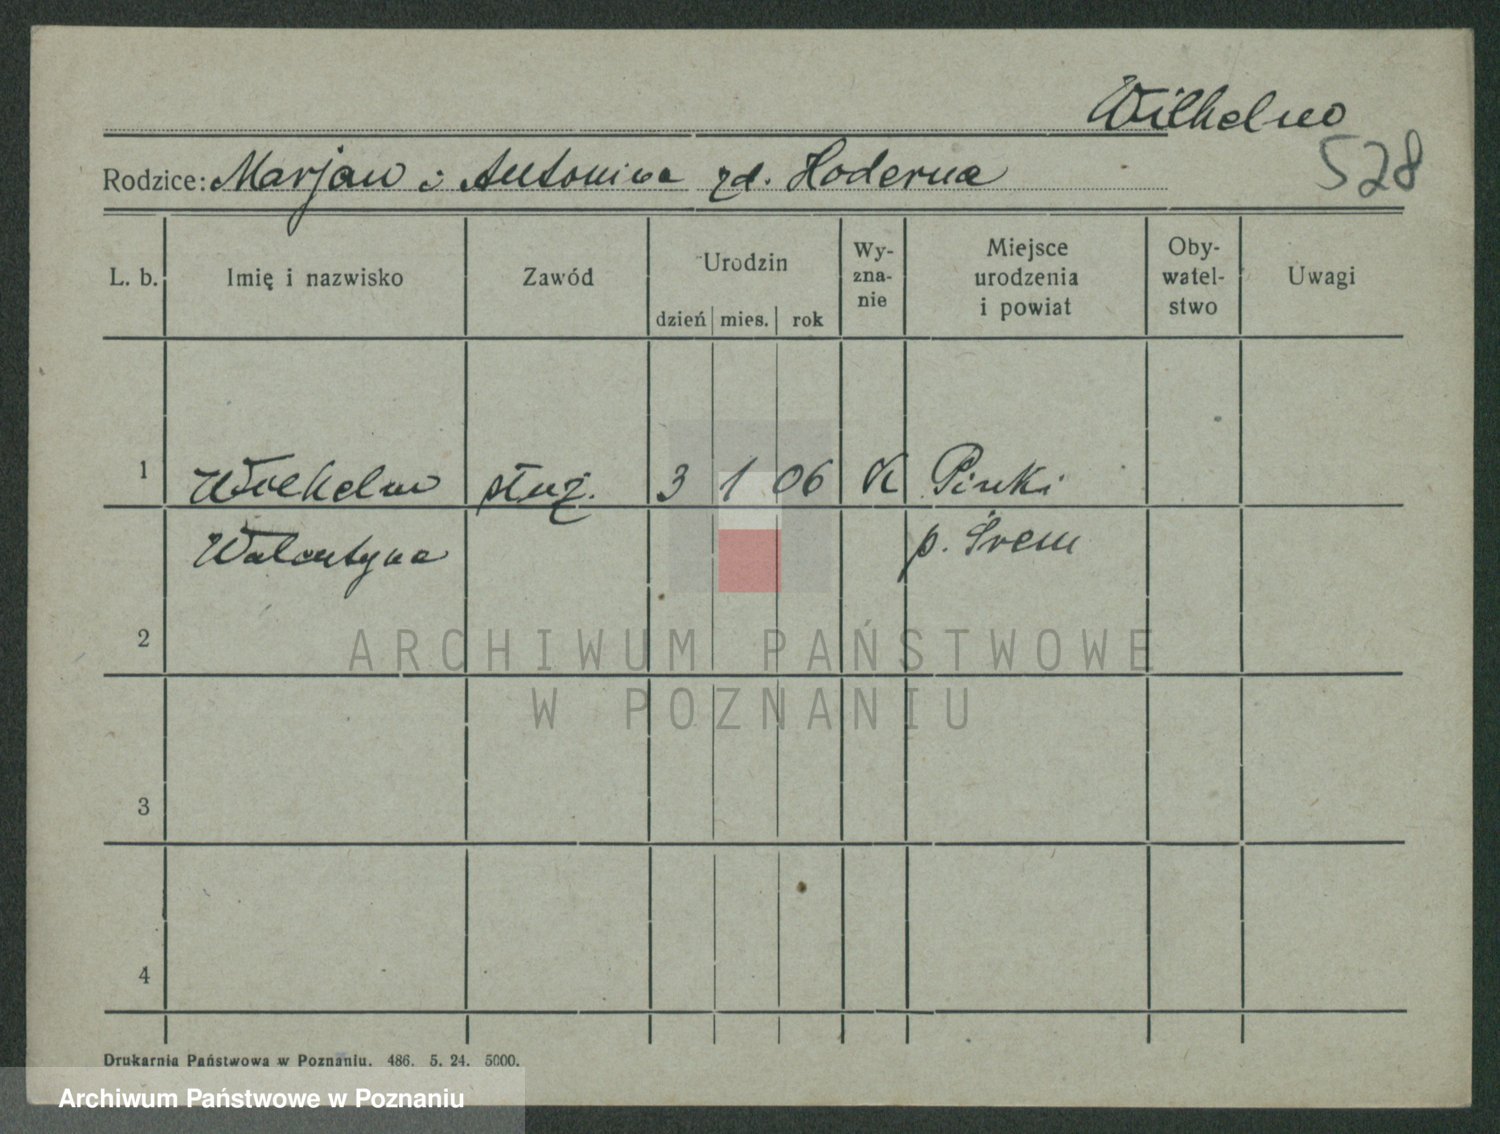 Wilhelm
528
Rodzice: Marjan i Antonina zd. Hoderna
L. b. Imię i nazwisko Zawód Urodzin dzień mies. rok Wy-zna-nie Miejsce urodzenia i powiat Oby-watel-stwo Uwagi
1 Wilhelm służ. 3 1 06 K Pinki
Walentyna p. Śrem
2
ARCHIWUM PAŃSTWOWE
W POZNANIU
3
4
Drukarnia Państwowa w Poznaniu. 486. 5. 24. 5000.
Archiwum Państwowe w Poznaniu